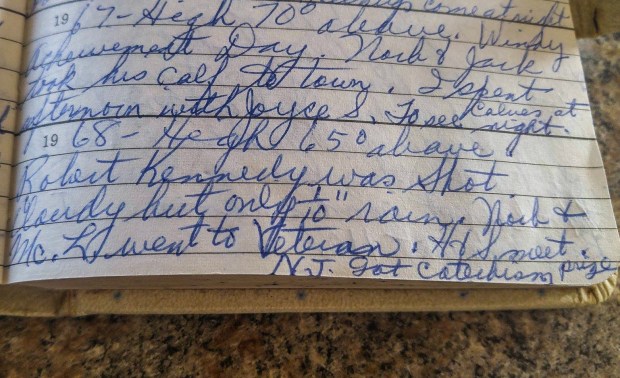 come at night
1967 - High 70° above. Windy
Achievement Day. Noah & Jack
took his calf to town. I spent
afternoon with Joyce S. To see calves at night.
1968 - High 65° above.
Robert Kennedy was Shot.
Cloudy but only 1/10" rain. Noah &
Mc. L. went to Veteran. H & S meet.
N.J. Got Catechism prize